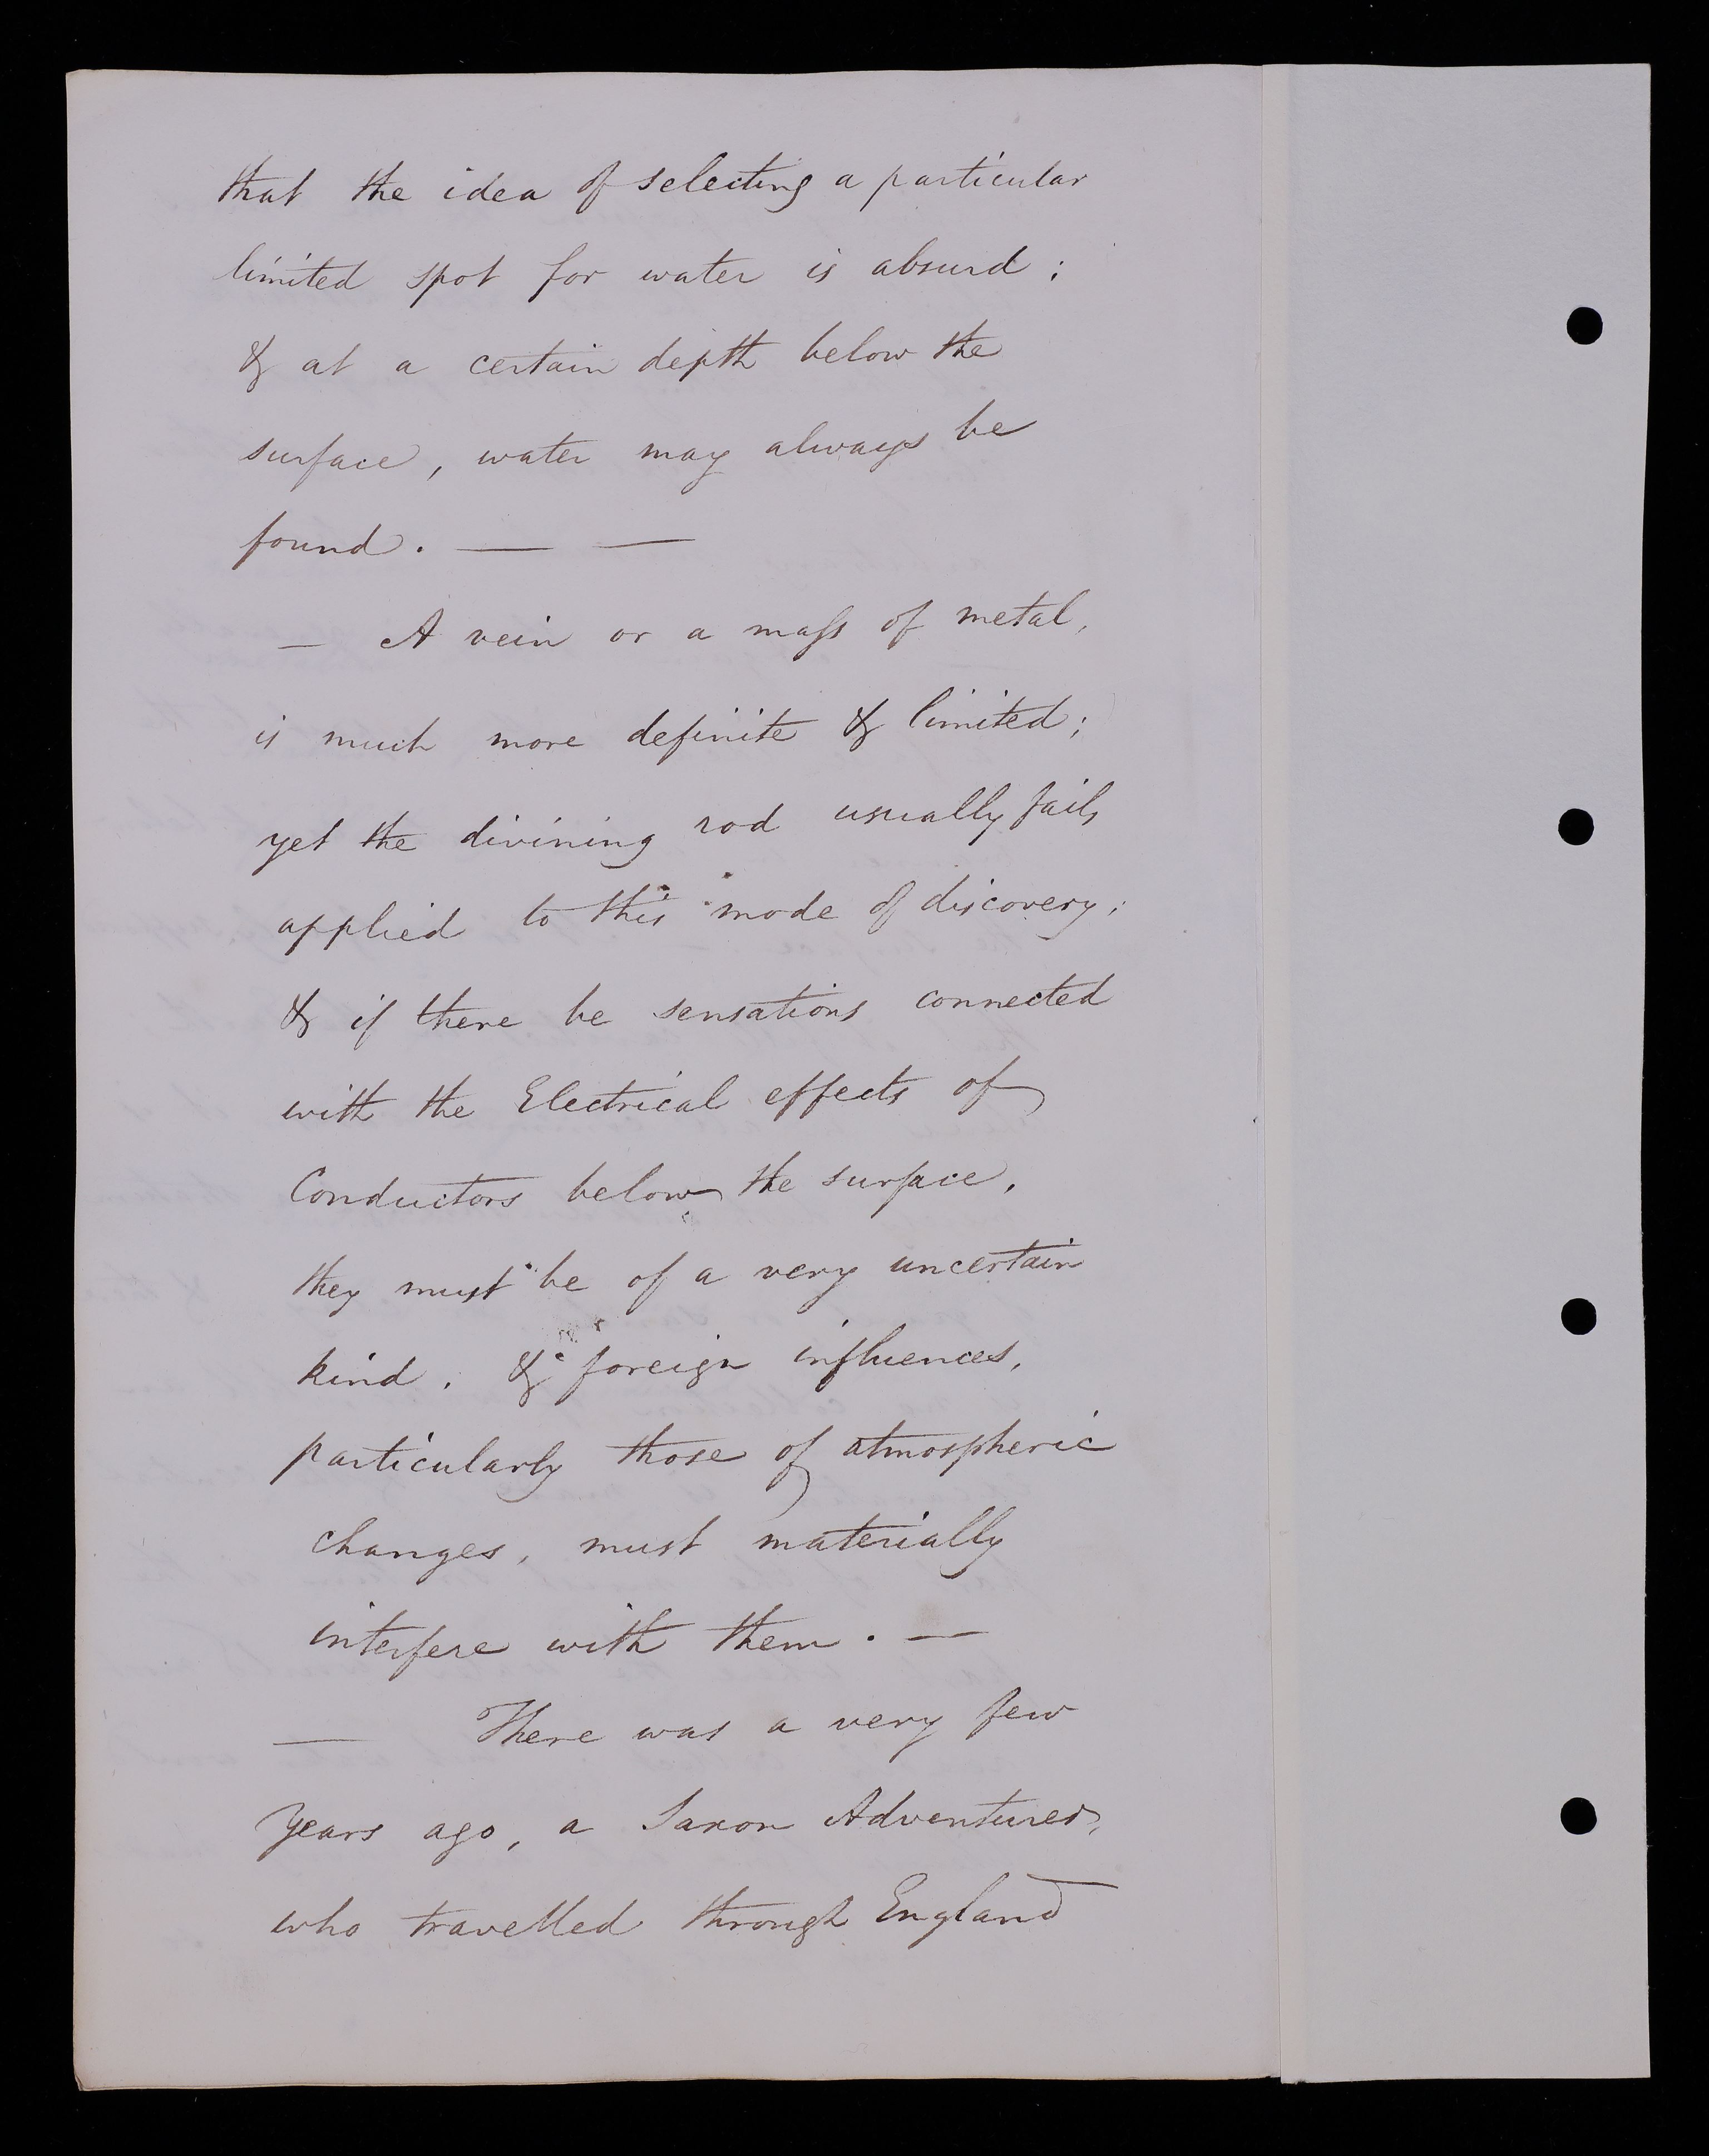 that the idea of selecting a particular
limited spot for water is absurd;
& at a certain depth below the
surface, water may always be
found. — —
— A vein or a maſs of metal,
is much more definite & limited;
yet the divining rod usually fails
applied to this mode of discovery;
& if there be sensations connected
with the Electrical effects of
Conductors below the surface,
they must be of a very uncertain
kind. & foreign influences,
particularly those of atmospheric
changes, must materially
interfere with them. —
— There was a very few
years ago, a Saxon Adventurer,
who travelled through England